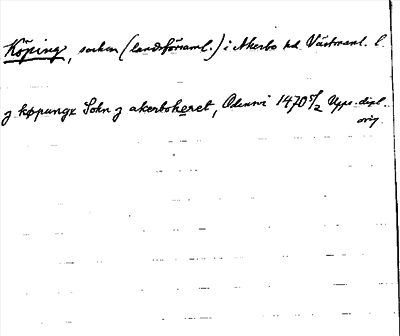 Köping, socken (landsförsaml.) i Akerbo hd Västmanl. l.
j køpungx Sokn j akerbohæret, Odenswi 1470 5/2 Upps. dipl.
orig.